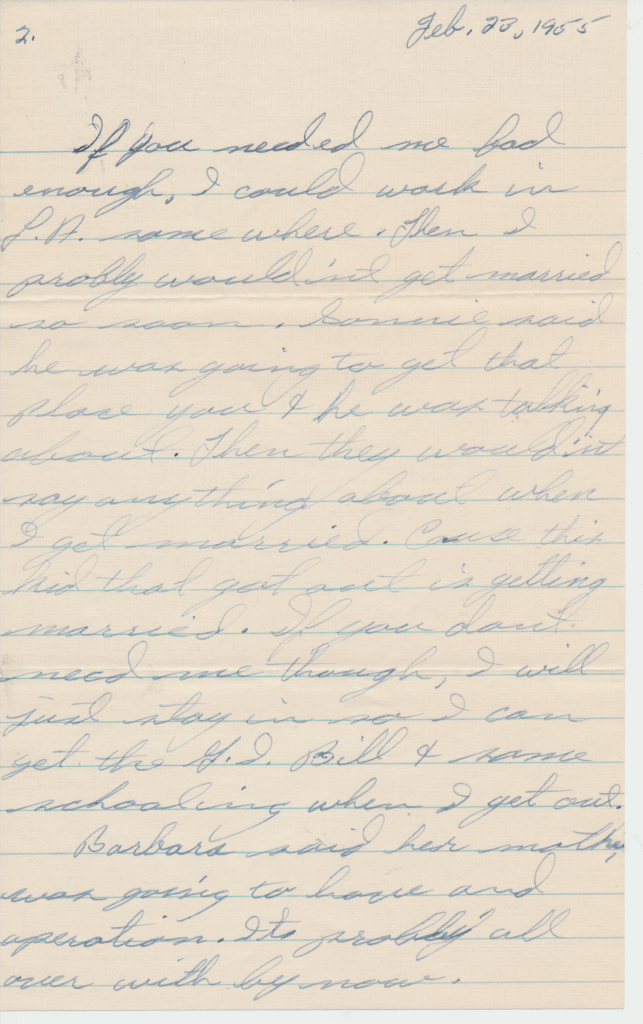 2.
Feb. 23, 1955
If you needed me bad
enough, I could work in
L.A. some where. Then I
probly would'nt get married
so soon. Lonnie said
he was going to get that
place you & he was talking
about. Then they would'nt
say anything about when
I get married. Cause this
kid that got out is getting
married. If you don't
need me though, I will
just stay in so I can
get the G.I. Bill & some
schooling when I get out.
Barbara said her mother
was going to have and
operation. Its probbly all
over with by now.